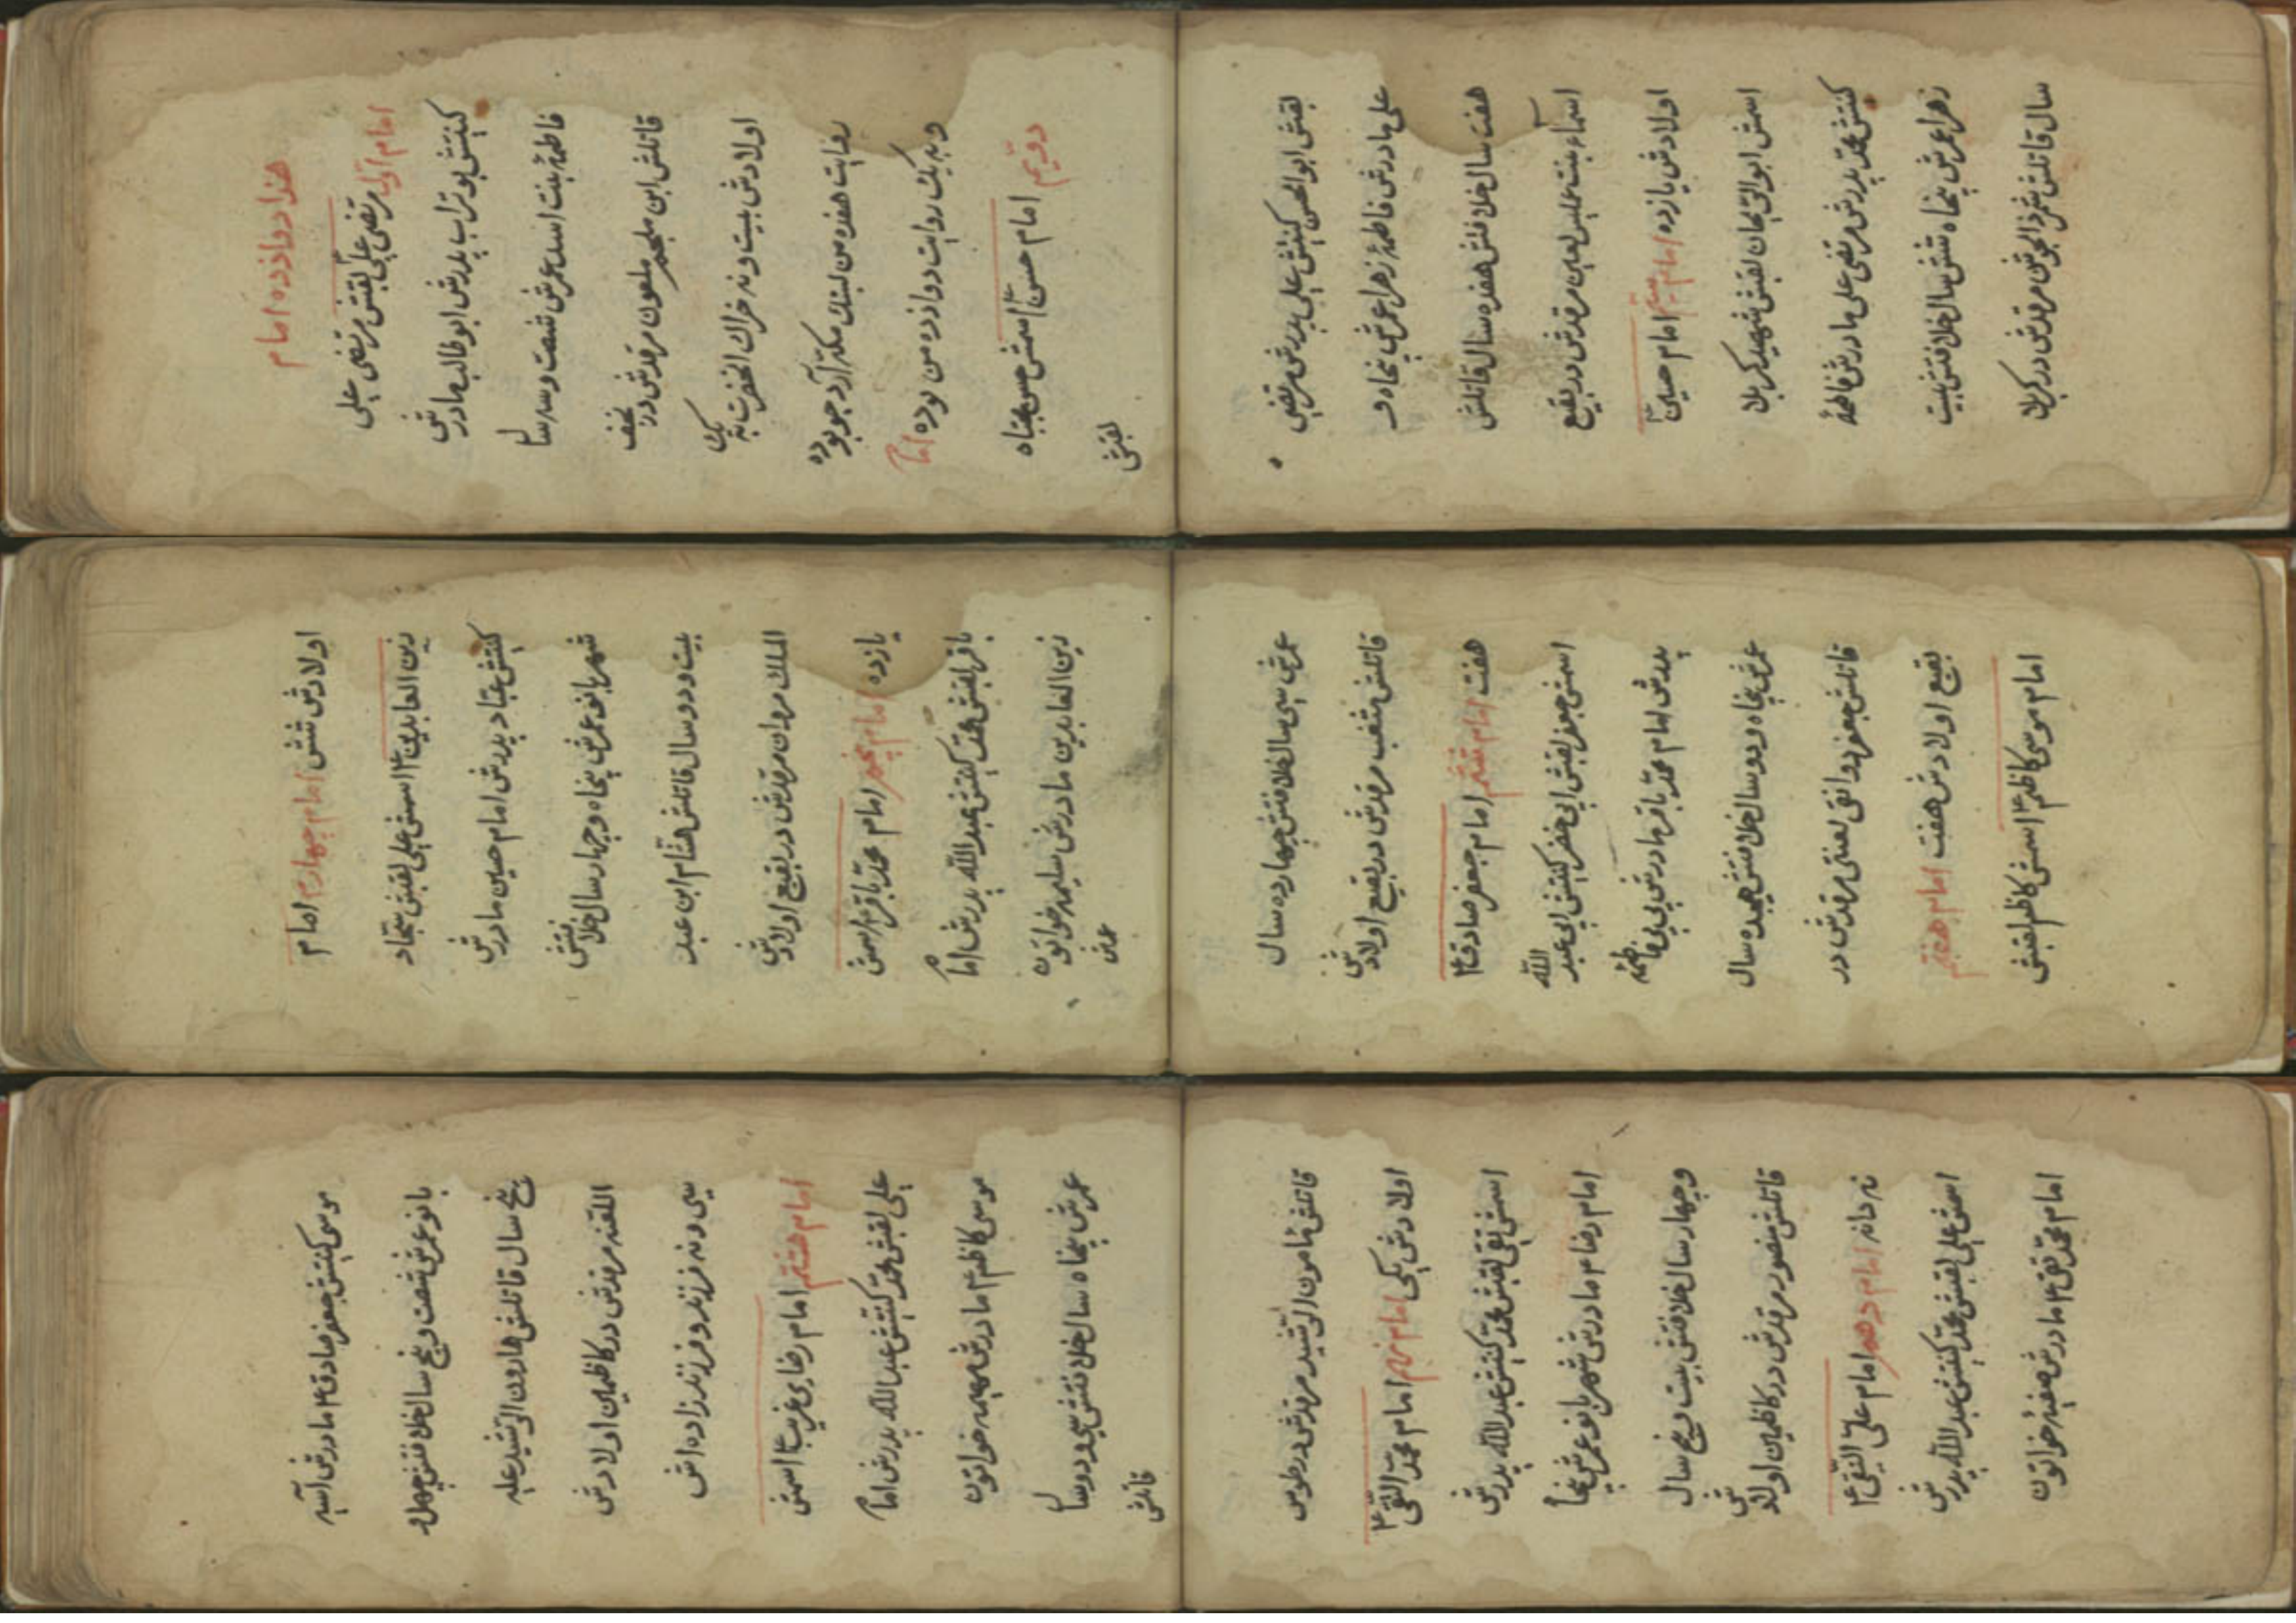 هذا دوازده امام
امام اول مرتضی علی لقبش مرتضی علی
کنیتش بوتراب پدرش ابو طالب مادرش
فاطمهٔ بنت اسد عمرش شصت و سه سال
قاتلش ابن ملجم ملعون مرقدش در نجف
اولادش بیست و نه خراك انحضرت به یك
روایت هفده من لبنك مکه آرد جو بوده
و به یك روایت دوازده من بوده اما
دویم امام حسن اسمش حسن مجتباه
لقبش
لقبش ابوالحسن کنیتش علی پدرش مرتضی
علی مادرش فاطمهٔ زهرا عمرش پنجاه و
هفت سال خلافتش هفده سال قاتلش
اسماء بنت لعین مرقدش در بقیع
اولادش یازده امام سیم امام حسین
اسمش ابوالقیمان لقبش شهید کربلا
کنیتش محمد پدرش مرتضی علی مادرش فاطمهٔ
زهرا عمرش پنجاه شش سال خلافتش بیست
سال قاتلش شمر ذالجوشن مرقدش در کربلا
اولادش شش امام چهارم امام
زین العابدین اسمش علی لقبش سجاد
کنیتش عباد پدرش امام حسین مادرش
شهربانو عمرش پنجاه و چهار سال خلافتش
بیست و دو سال قاتلش هشام ابن عبد
الملك مروان مرقدش در بقیع اولادش
یازده امام پنجم امام محمد باقر اسمش
باقر لقبش محمد کنیتش عبدالله پدرش امام
زین العابدین مادرش سلیمه خواتون
عمرش
عمرش سی سال خلافتش چهارده سال
قاتلش مرقدش در بقیع اولادش
هفت امام ششم امام جعفر صادق
اسمش جعفر لقبش ابی جعفر کنیتش ابی عبد الله
پدرش امام محمد باقر مادرش بی بی فاطمه
عمرش پنجاه و دو سال خلافتش هیجده سال
قاتلش جعفر دوانقی لعنتی مرقدش در
بقیع اولادش هفت امام هفتم
امام موسی کاظم اسمش کاظم لقبش
موسی کنیتش جعفر صادق مادرش آسیه
بانو عمرش شصت و پنج سال خلافتش چهل و
پنج سال قاتلش هارون الرشید علیه
اللعنه مرقدش در کاظمین اولادش
سی و نه فرزند و فرزند زاده اش
امام هشتم امام رضای غریب اسمش
علی لقبش محمد کنیتش عبدالله پدرش امام
موسی کاظم مادرش خواتون
عمرش پنجاه سال خلافتش سی و دو سال
قاتلش
قاتلش مامون الرشید مرقدش در طوس
اولادش یکی امام نهم امام محمد التقی
اسمش تقی لقبش محمد کنیتش عبدالله پدرش
امام رضا مادرش شهربانو عمرش پنجاه
و چهار سال خلافتش بیست و پنج سال
قاتلش منصور مرقدش در کاظمین اولادش
نه دانه امام دهم امام علی النقی
اسمش علی لقبش محمد کنیتش عبدالله پدرش
امام محمد تقی مادرش صفیه خواتون